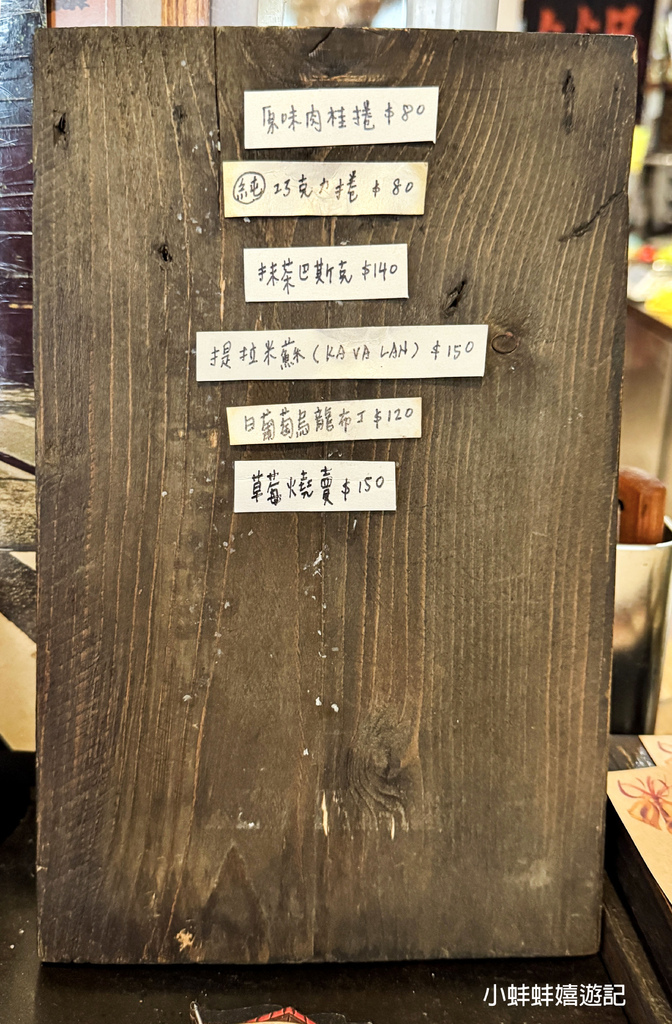 原味肉桂捲 $80
純 巧克力捲 $80
抹茶巴斯克 $140
提拉米蘇 (KAVALAN) $150
白葡萄烏龍布丁 $120
草莓燒賣 $150
小蚌蚌嬉遊記